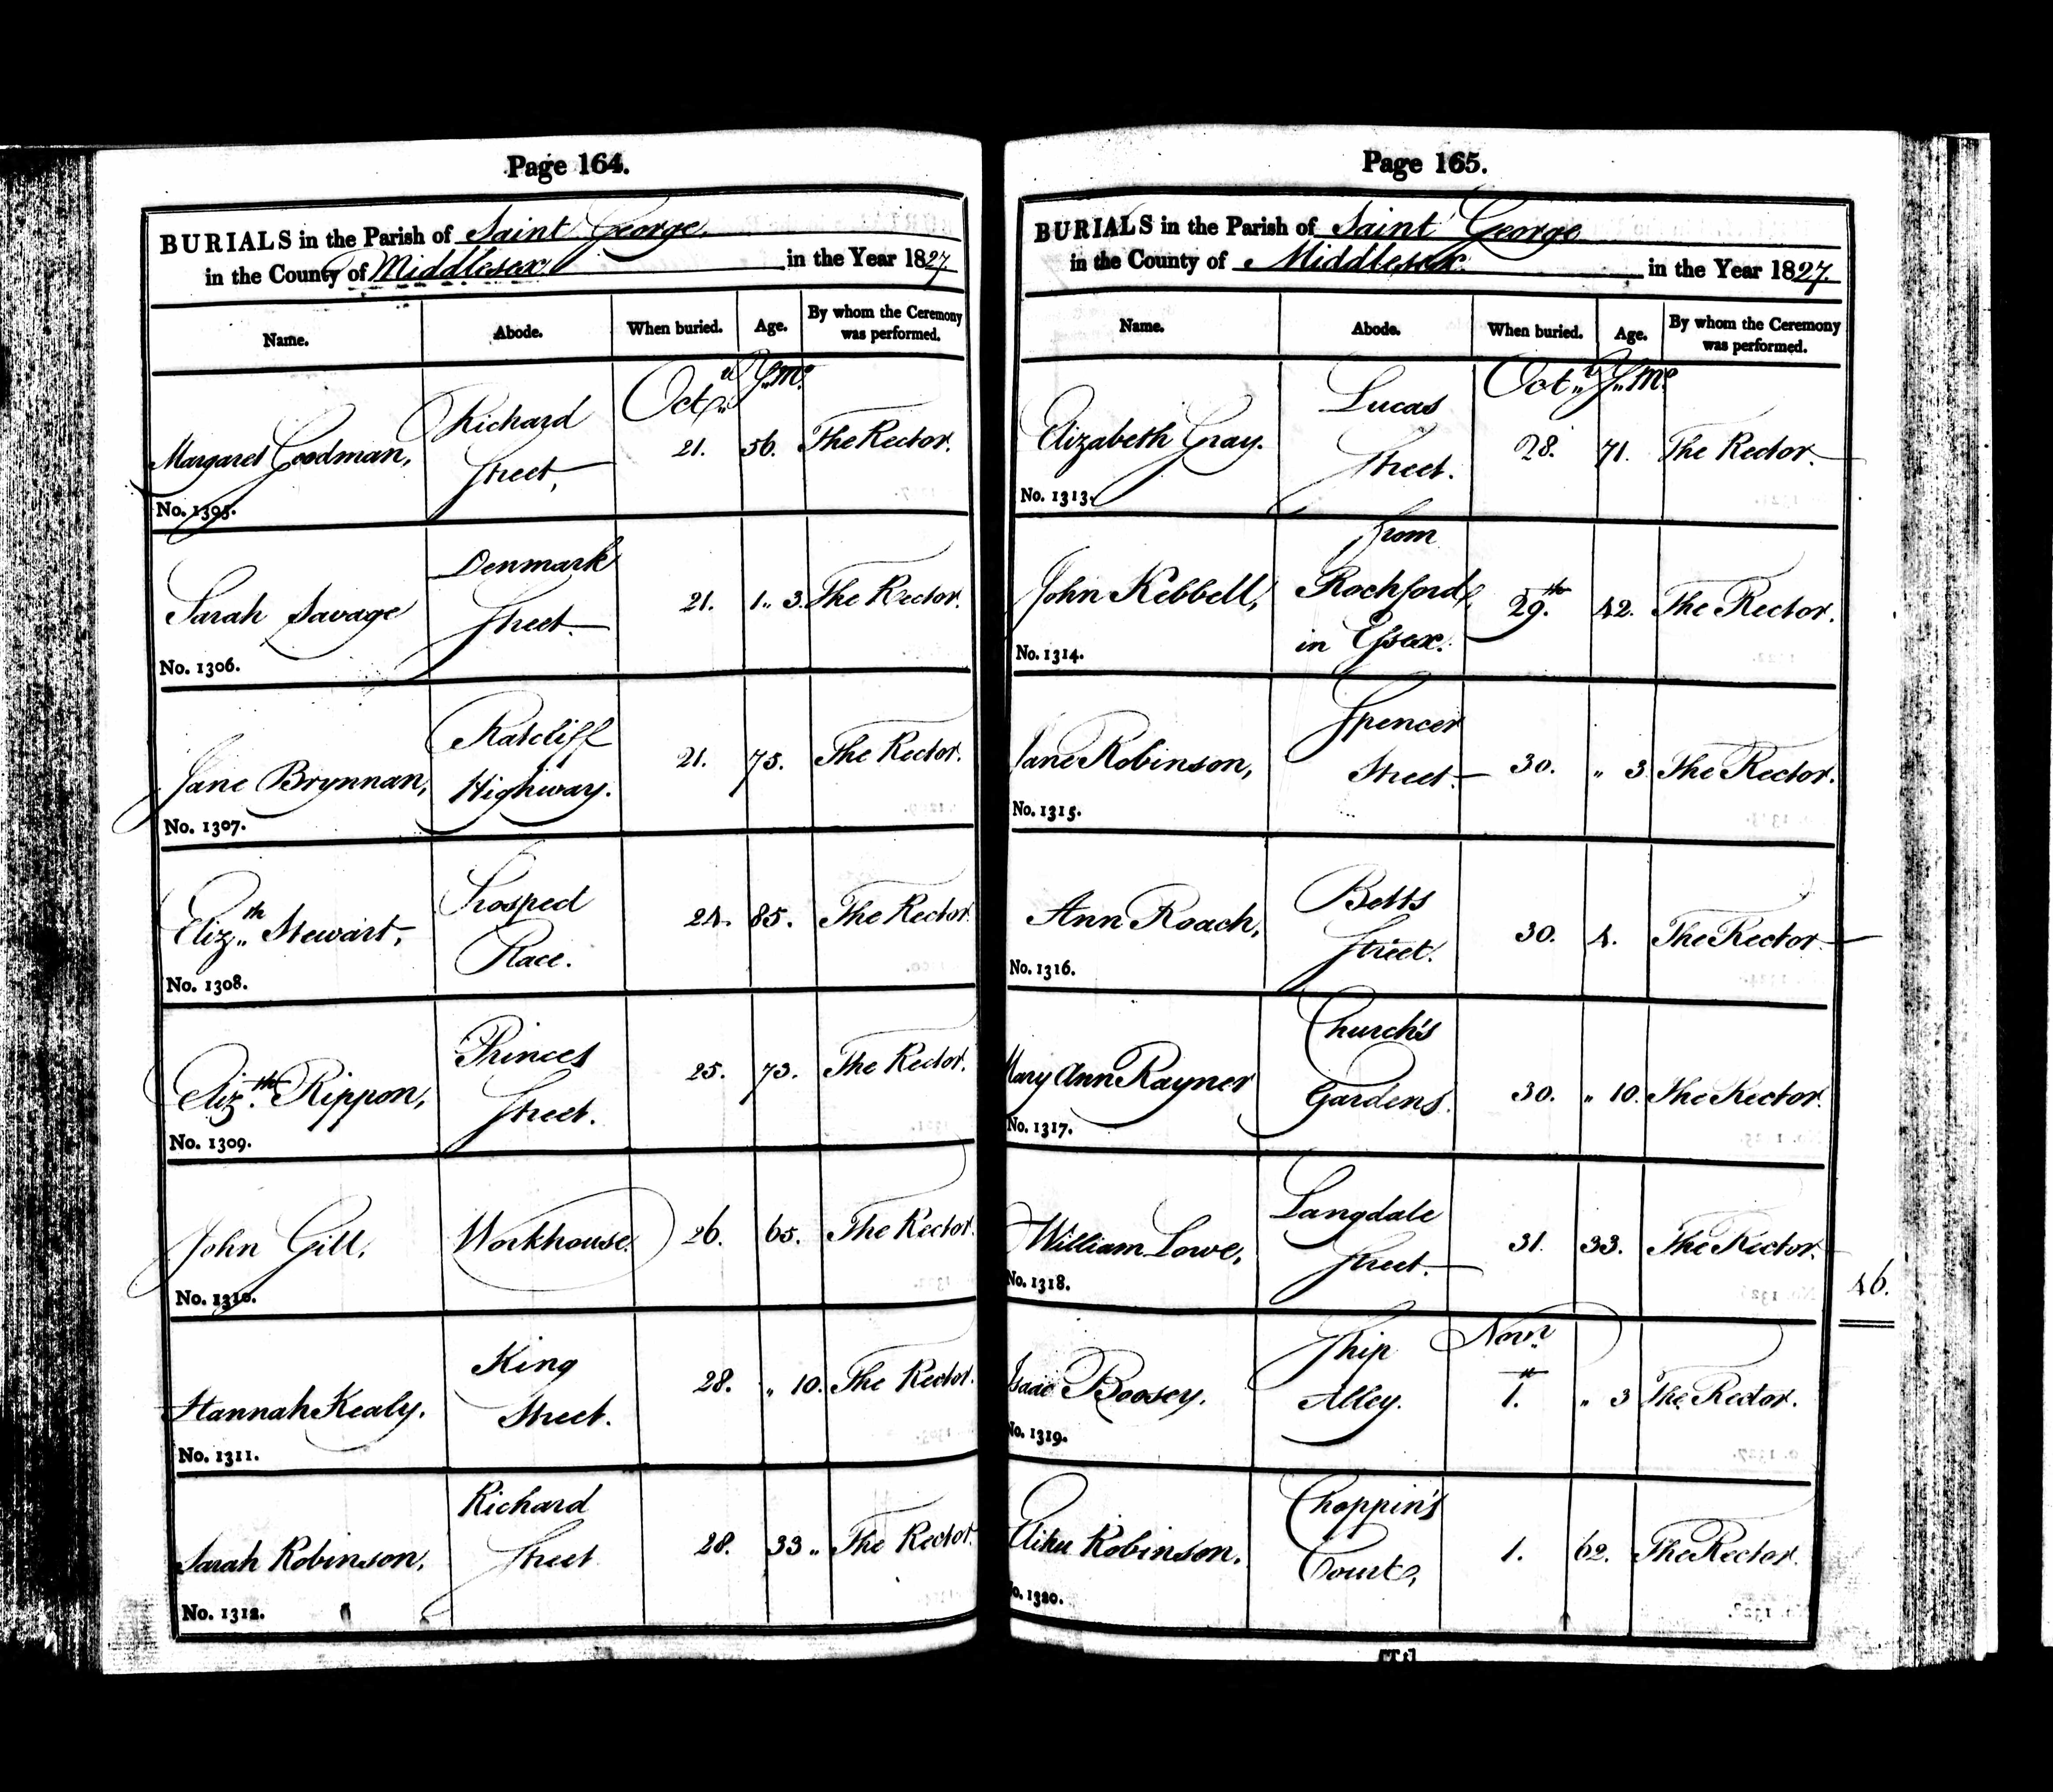 Page 164.
BURIALS in the Parish of Saint George,
in the County of Middlesex in the Year 1827
Name. Abode. When buried. Age. By whom the Ceremony was performed.
Octr. Y. Mo.
Margaret Goodman, Richard Street, 21. 56. The Rector.
No. 1305.
Sarah Savage Denmark Street 21. 1 „ 3. The Rector.
No. 1306.
Jane Brynnan, Ratcliff Highway. 21. 75. The Rector.
No. 1307.
Eliz„th Stewart, Prospect Place. 24. 85. The Rector.
No. 1308.
Eliz.th Rippon, Princes Street. 25. 73. The Rector.
No. 1309.
John Gill, Workhouse. 26. 65. The Rector.
No. 1310.
Hannah Kealy. King Street. 28. „ 10. The Rector.
No. 1311.
Sarah Robinson, Richard Street 28. 33 „ The Rector.
No. 1312.
Page 165.
BURIALS in the Parish of Saint George
in the County of Middlesex. in the Year 1827.
Name. Abode. When buried. Age. By whom the Ceremony was performed.
Octr. Y. Mo
Elizabeth Gray. Lucas Street. 28. 71. The Rector.
No. 1313.
John Kebbell, from Rochford, in Essex. 29.th 42. The Rector.
No. 1314.
Jane Robinson, Spencer Street. 30. „ 3. The Rector.
No. 1315.
Ann Roach, Betts Street. 30. 4. The Rector
No. 1316.
Mary Ann Rayner Church's Gardens. 30. „ 10. The Rector.
No. 1317.
William Lowe, Langdale Street. 31. 33. The Rector.
No. 1318.
46.
Novr.
Isaac Boosey. Ship Alley. 1. „ 3 The Rector.
No. 1319.
Elihu Robinson. Choppin's Court, 1. 62. The Rector.
No. 1320.